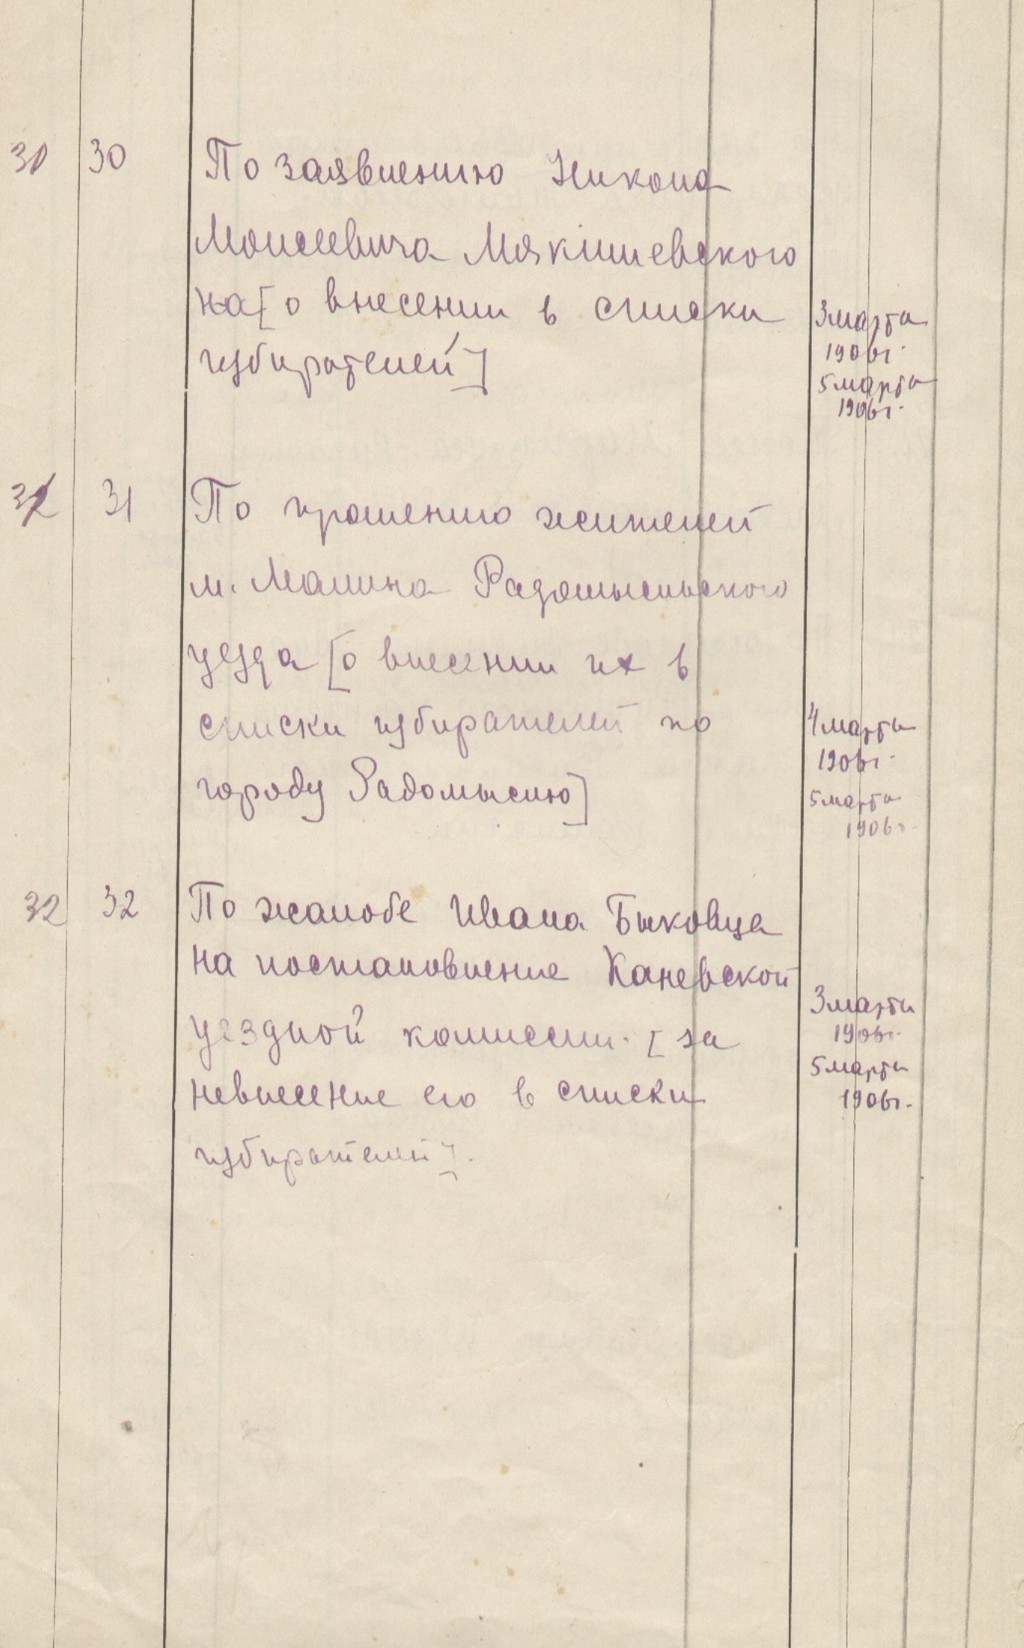 30 30 По заявлению Никона
Моисеевича Мякишевского
на [о внесении в списки
избирателей]
3 марта
1906г.
5 марта
1906г.
31 31 По прошению жителей
м. Малина Радомысльского
уезда [о внесении их в
списки избирателей по
городу Радомыслю]
4 марта
1906г.
5 марта
1906г.
32 32 По жалобе Ивана Быковца
на постановление Каневской
уездной комиссии. [за
невнесение его в списки
избирателей].
3 марта
1906г.
5 марта
1906г.